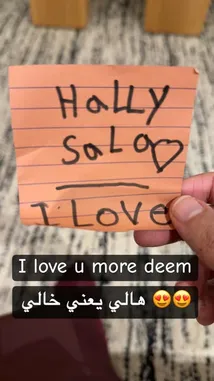 HaLLy
SaLo♡
I LOVe
I love u more deem
هالي يعني خالي 😍😍